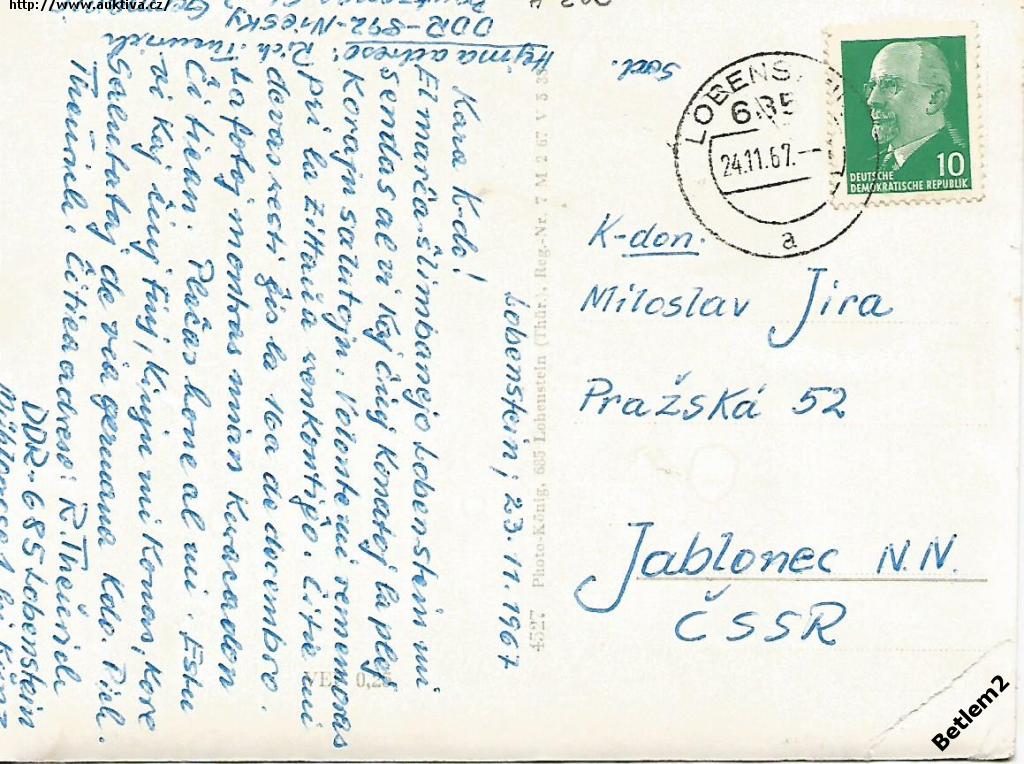 http://www.auktiva.cz/
Lobenstein, 23.11.1967
Kara K-do!
El marĉa-ŝlimbanejo Lobenstein mi
sendas al vi kaj ĉiuj konatoj la plej
korajn salutojn. Volonte mi rememoras
pri la Zittaŭa renkontiĝo. Ĉi tie mi
devas resti ĝis la 16a de decembro.
La foto montras mian kuracadon
ĉi tiean. Plaĉas bone al mi. Estu
vi kaj ĉiuj tiuj, kiujn mi konas, kore
salutataj de via germana Kdo. Rich.
Theŭnich. Ĉi tiea adreso: R. Theŭnich
DDR-685 Lobenstein
Hejma adreso: Rich. Theunich
DDR-892-Niesky
4527 Photo-König, 685 Lobenstein (Thür.), Reg.-Nr. 7 M 2 67 V 5 38
0,25
LOBENS
685
24.11.67.--
a
DEUTSCHE
DEMOKRATISCHE REPUBLIK
10
K-don.
Miloslav Jira
Pražská 52
Jablonec N.N.
ČSSR
Betlem2